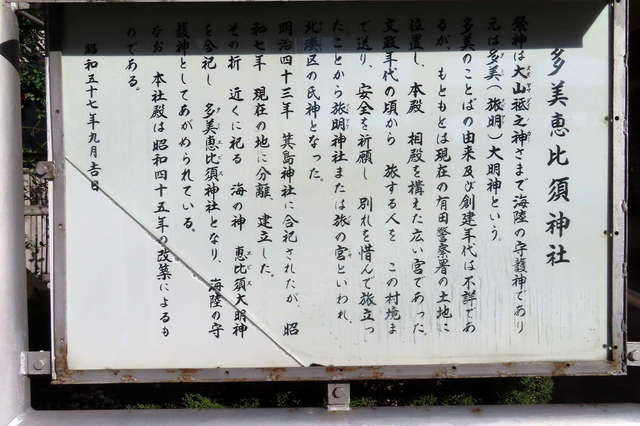 多美恵比須神社
祭神は大山祗之神さまで海陸の守護神であり
元は多美(旅明)大明神という。
多美のことばの由来及び創建年代は不詳であ
るが、もともとは現在の有田警察署の土地に
位置し、本殿　相殿を構えた広い宮であった。
文政年代の頃から　旅する人を　この村境ま
で送り、安全を祈願し　別れを惜んで旅立っ
たことから旅明神社または旅の宮といわれ、
北湊区の氏神となった。
明治四十三年　箕島神社に合祀されたが、昭
和七年　現在の地に分離、建立した。
その折　近くに祀る　海の神　恵比須大明神
を合祀し　多美恵比須神社となり、海陸の守
護神としてあがめられている。
なお　本社殿は昭和四十五年の改築によるも
のである。
昭和五十七年九月吉日